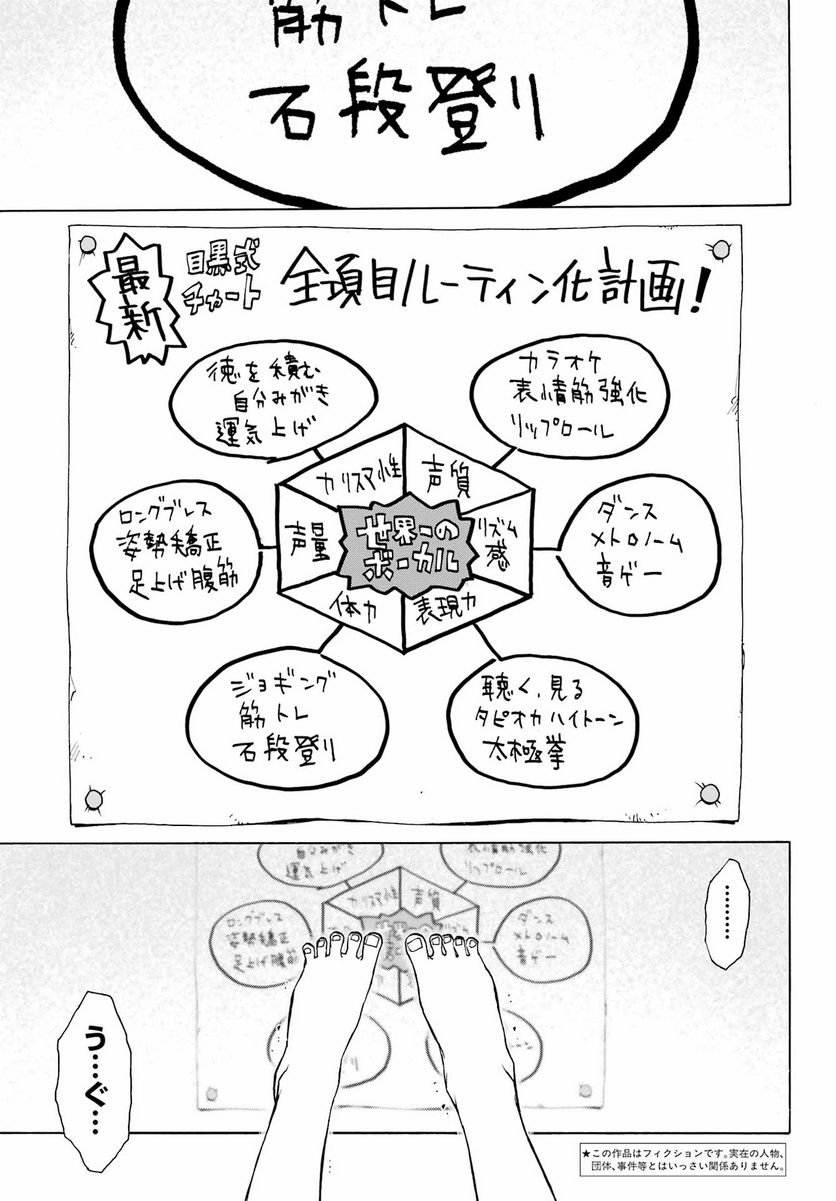 筋トレ
石段登り
最新
目黒式
チャート
全項目ルーティン化計画!
カラオケ
表情筋強化
リップロール
徳を積む
自分みがき
運気上げ
カリスマ性
声質
声量
世界一の
ボーカル
リズム
感
体力
表現力
ダンス
メトロノーム
音ゲー
ロングブレス
姿勢矯正
足上げ腹筋
聴く、見る
タピオカハイトーン
太極拳
ジョギング
筋トレ
石段登り
………
自分みがき
運気上げ
表情筋強化
リップロール
カリスマ性
声質
ロングブレス
姿勢矯正
足上げ腹筋
ダンス
メトロノーム
音ゲー
う…ぐ…
★この作品はフィクションです。実在の人物、
団体、事件等とはいっさい関係ありません。